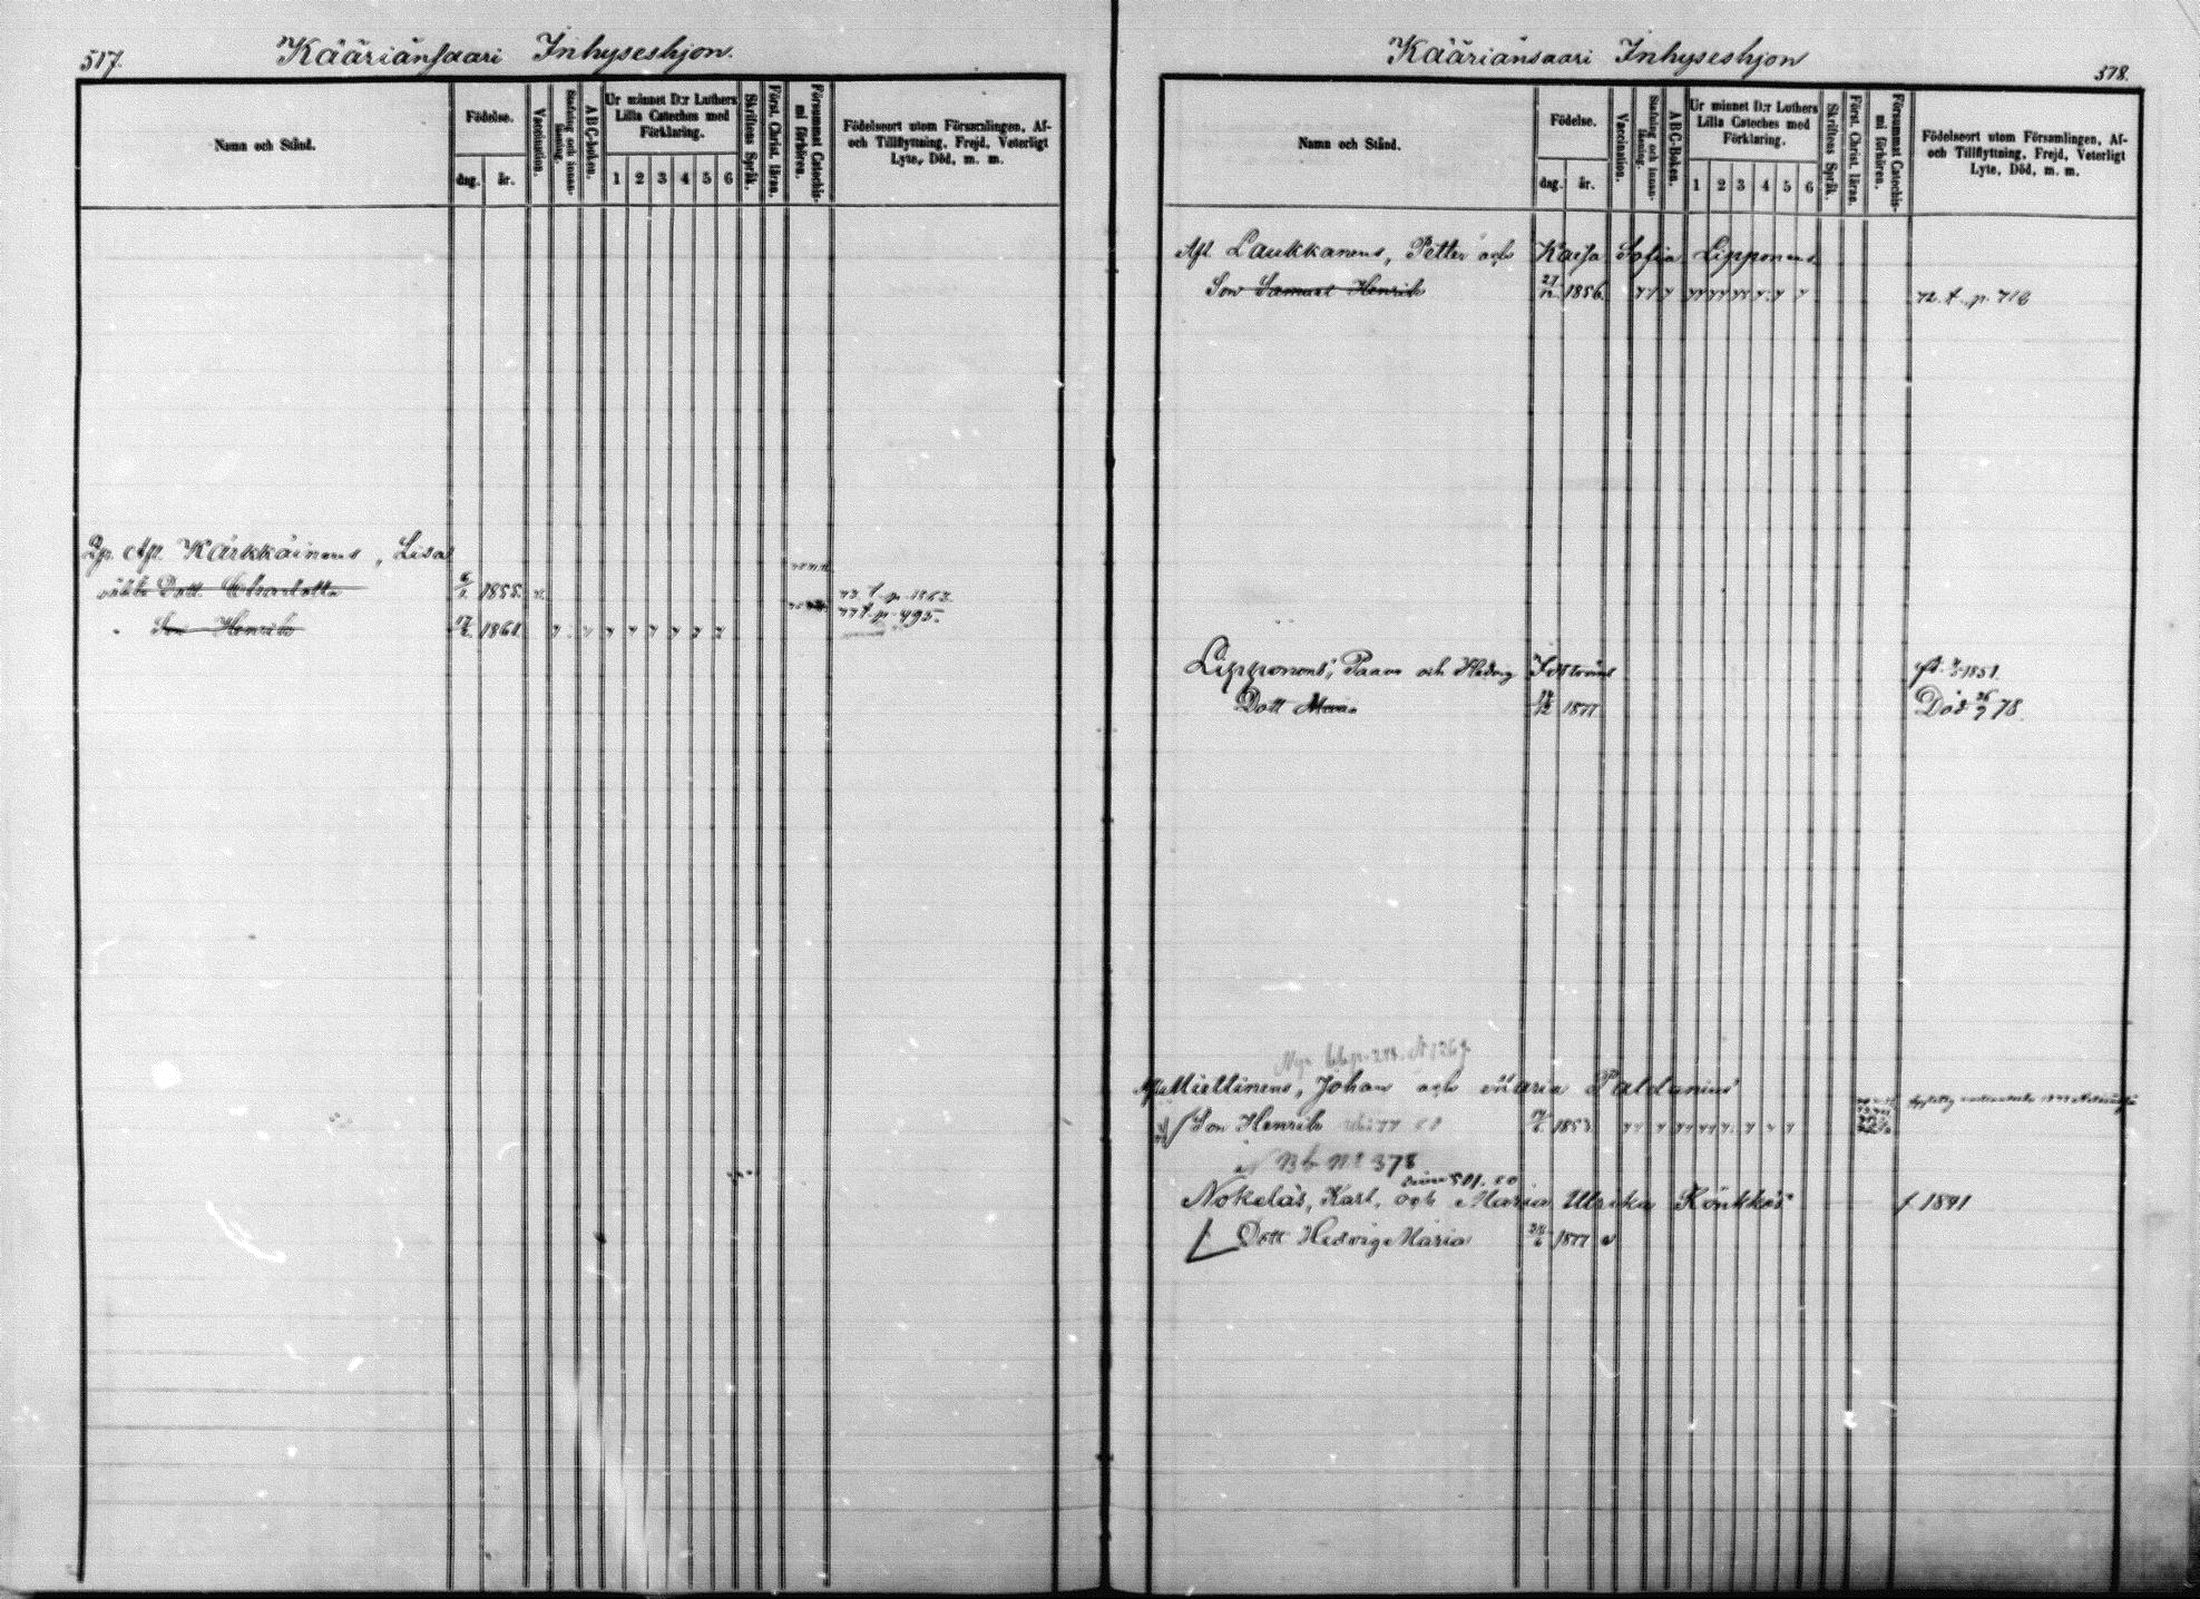 517.
Kääriänsaari Inhyseshjon.
Namn och Stånd.
Födelse.
dag.
år.
Vaccination.
Stafning och innan-
läsning.
ABC-boken.
Ur minnet D:r Luthers
Lilla Cateches med
Förklaring.
1 2 3 4 5 6
Skriftens Språk.
Först. Christ. läran.
Försummat Catechis-
mi förhören.
Födelseort utom Församlingen, Af-
och Tillflyttning, Frejd, Veterligt
Lyte, Död, m. m.
Kärkkäinens, Lisa
Dott. Charlotta 1855.
73. t. p.
Son Henrik 1861.
77 t. p. 495.
Kääriänsaari Inhyseshjon
518.
Namn och Stånd.
Födelse.
dag.
år.
Vaccination.
Stafning och innan-
läsning.
ABC-Boken.
Ur minnet D:r Luthers
Lilla Cateches med
Förklaring.
1 2 3 4 5 6
Skriftens Språk.
Först. Christ. läran.
Försummat Catechis-
mi förhören.
Födelseort utom Församlingen, Af-
och Tillflyttning, Frejd, Veterligt
Lyte, Död, m. m.
Afl. Laukkanens, Petter och Kaisa Sofia Lipponens
Son Samuel Henrik 27/12 1856. 72. t. p. 716
Lipponens, Paavo och Hedvig 1851.
Dott 1877 Död 26/7 78.
Miettinens, Johan och Maria Paldanius
Son Henrik 1853
Nb N:o 378
Nokeläs, Karl, och Maria Ulrika Könkkös f 1841
Dott Hedvig Maria 1877 v